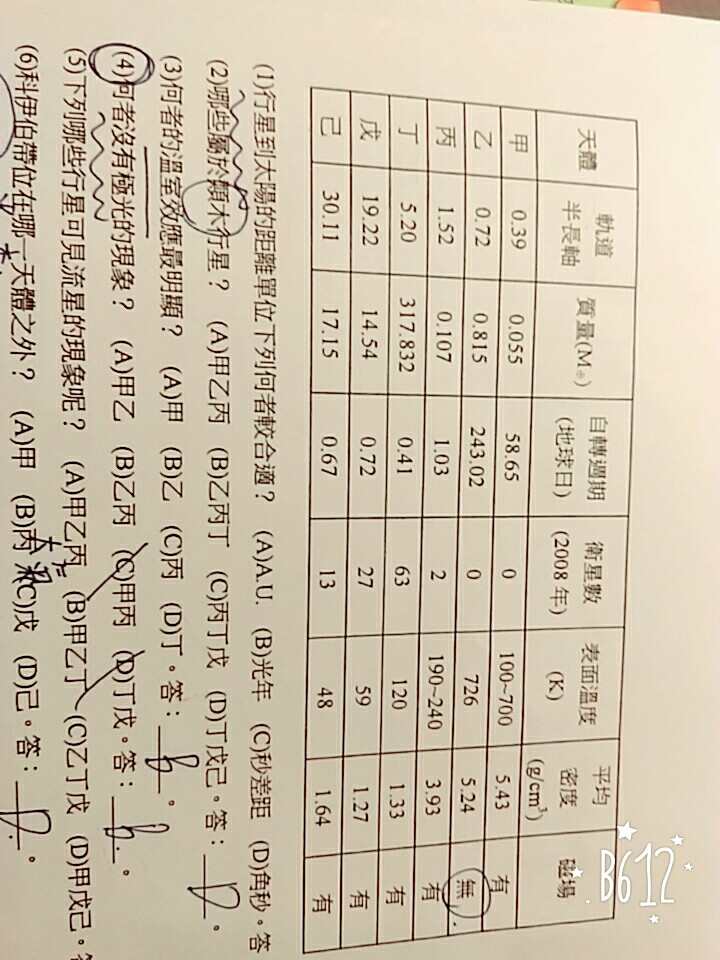 天體 軌道半長軸 質量(M⊕) 自轉週期(地球日) 衛星數(2008年) 表面溫度(K) 平均密度(g/cm³) 磁場
甲 0.39 0.055 58.65 0 100~700 5.43 有
乙 0.72 0.815 243.02 0 726 5.24 無
丙 1.52 0.107 1.03 2 190~240 3.93 有
丁 5.20 317.832 0.41 63 120 1.33 有
戊 19.22 14.54 0.72 27 59 1.27 有
己 30.11 17.15 0.67 13 48 1.64 有
(1)行星到太陽的距離單位下列何者較合適? (A)A.U. (B)光年 (C)秒差距 (D)角秒。答
(2)哪些屬於類木行星? (A)甲乙丙 (B)乙丙丁 (C)丙丁戊 (D)丁戊己。答:D。
(3)何者的溫室效應最明顯? (A)甲 (B)乙 (C)丙 (D)丁。答:b。
(4)何者沒有極光的現象? (A)甲乙 (B)乙丙 (C)甲丙 (D)丁戊。答:b。
(5)下列哪些行星可見流星的現象呢? (A)甲乙丙 (B)甲乙丁 (C)乙丁戊 (D)甲戊己。
(6)科伊伯帶位在哪一天體之外? (A)甲 (B)丙 (C)戊 (D)己。答:D。
B612